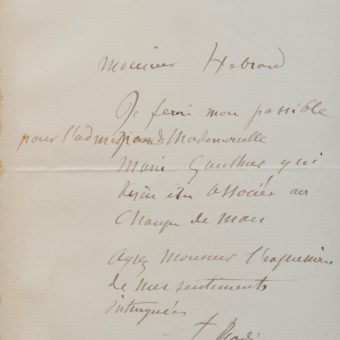 Monsieur Hebrard
Je ferai mon possible
pour l'admission de Mademoiselle
Marie Gauthier qui
désire être associée au
Champ de Mars
Agréz Monsieur l'expression
de mes sentiments